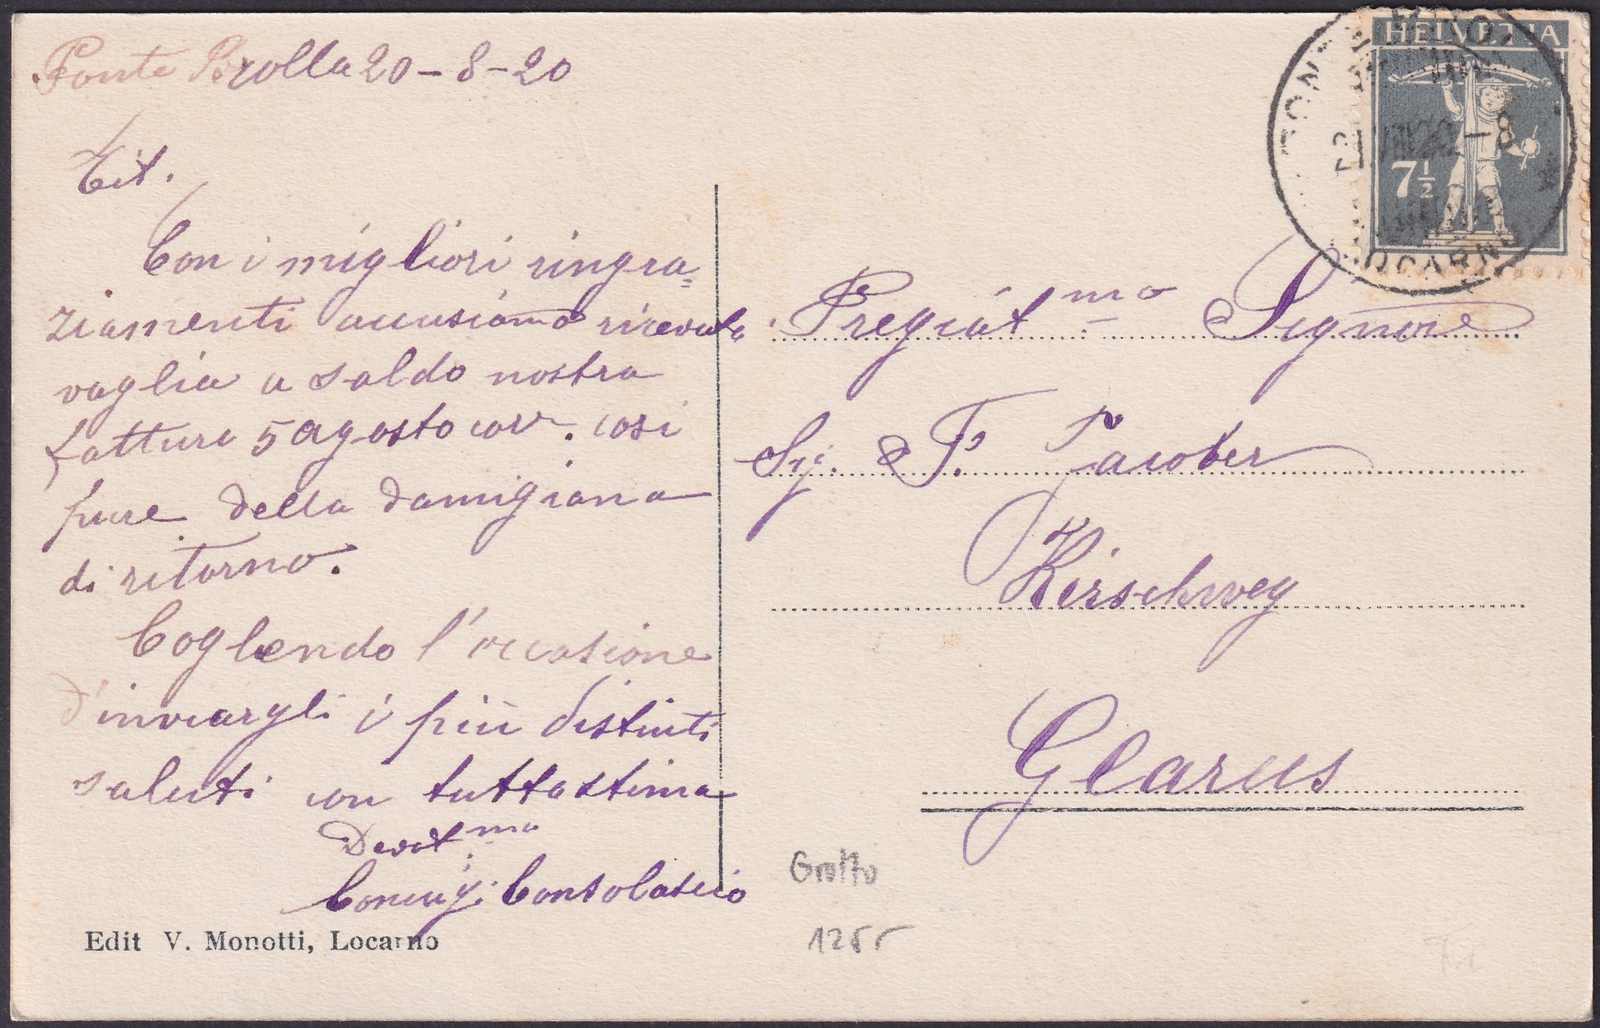 Ponte Brolla 20-8-20
Tit.
Con i migliori ringra=
ziamenti accusiamo ricevuta
vaglia a saldo nostra
fattura 5 agosto corr. così
pure della damigiana
di ritorno.
Coglendo l'occasione
d'inviargli i più distinti
saluti con tutta stima
Devot.mo
Coniugi Consolascio
Edit V. Monotti, Locarno
HELVEZIA
7½
LOCARNO
Pregiat.mo Signore
Sig. F. Jacober
Kirschweg
Glarus
Grotto